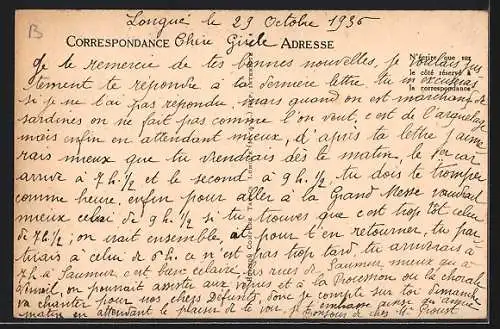 B
Longué le 29 Octobre 1936
CORRESPONDANCE Chère Gisèle ADRESSE
Je te remercie de tes bonnes nouvelles, je voulais jus
N'écrire que sur
le côté réservé à
la correspondance
tement te répondre à ta dernière lettre, tu m'excuseras
si je ne t'ai pas répondu, mais quand on est marchand de
sardines on ne fait pas comme l'on veut, c'est de l'
mais enfin en attendant mieux, d'après ta lettre j'aime
rais mieux que tu viendrais dès le matin, le 1er car
arrive à 7h.1/2 et le second à 9h.1/2, tu dois te tromper
comme heure, enfin pour aller à la Grand Messe vaudrait
mieux celui de 9h.1/2 si tu trouves que c'est trop tôt celui
de 7h.1/2; on irait ensemble, et pour t'en retourner, tu par
tirais à celui de 6h. ce n'est pas trop tard, tu arriverais à
7h à Saumur, c'est bien éclairé, les rues de Saumur mieux qu'à
on pourrait assister aux vêpres et à la Procession où la chorale
va chanter pour nos chers Défunts, donc je compte sur toi dimanche
matin en attendant le plaisir de te voir, je t'embrasse ainsi qu'
Bonjour de chez Mr